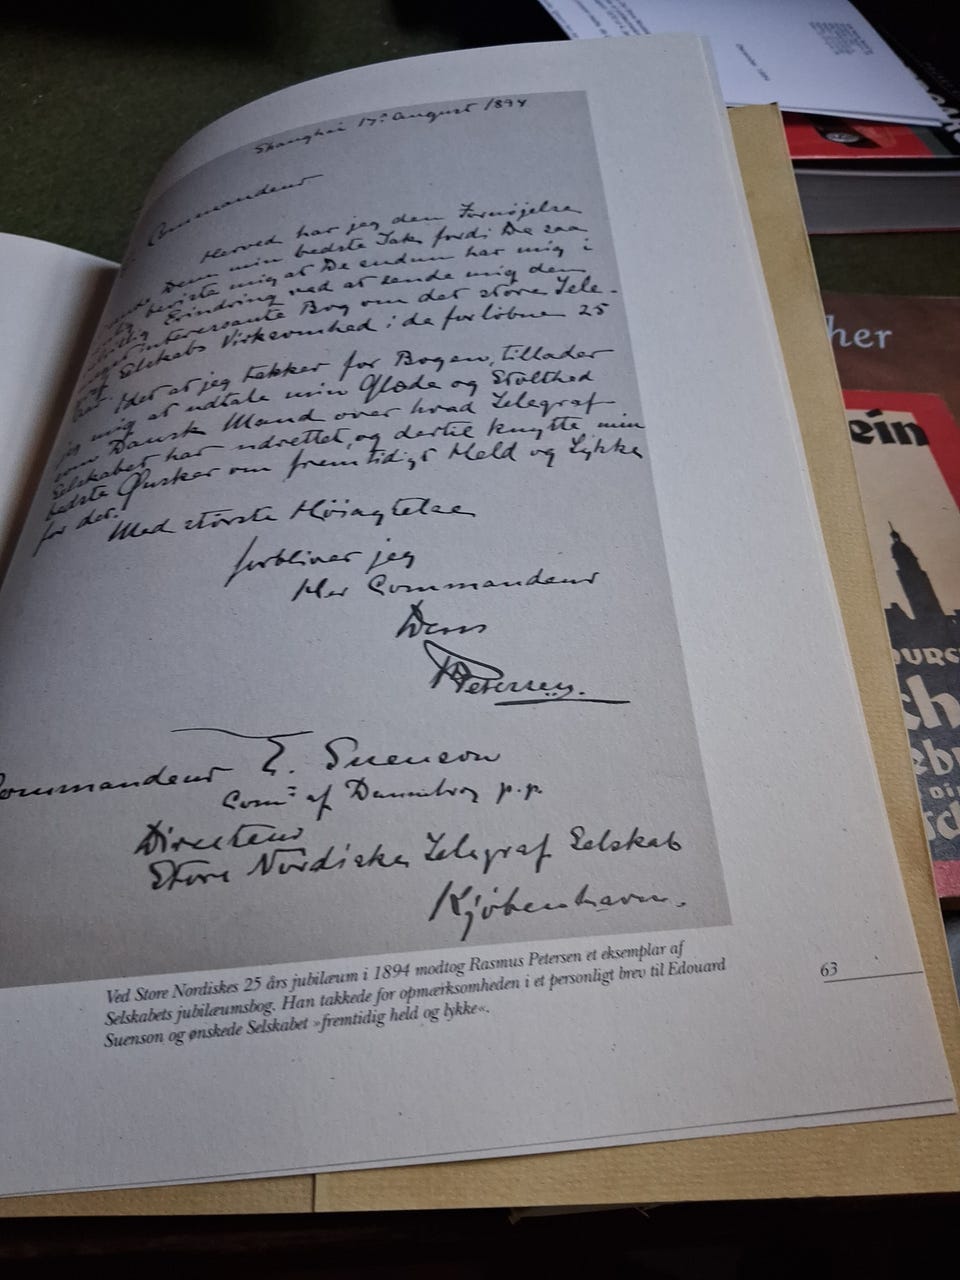 Shanghai 17de August 1894
Commandeur
Herved har jeg den Fornøjelse
Dem min bedste Tak fordi De saa
beviste mig at De endnu har mig i
Erindring ved at sende mig den
interessante Bog om det store Tele-
Selskabs Virksomhed i de forløbne 25
Idet at jeg takker for Bogen, tillader
jeg mig at udtale min Glæde og Stolthed
som Dansk Mand over hvad Telegraf
Selskabet har udrettet, og dertil knytte min
bedste Ønsker om fremtidigt Held og Lykke
for det.
Med største Højagtelse
forbliver jeg
Her Commandeur
Deres
Petersen.
Commandeur E. Suenson
Com= af Dannebrog p.p.
Directeur
Store Nordiske Telegraf Selskab
Kjöbenhavn.
Ved Store Nordiskes 25 års jubilæum i 1894 modtog Rasmus Petersen et eksemplar af
Selskabets jubilæumsbog. Han takkede for opmærksomheden i et personligt brev til Edouard
Suenson og ønskede Selskabet »fremtidig held og lykke«.
63
her
ein